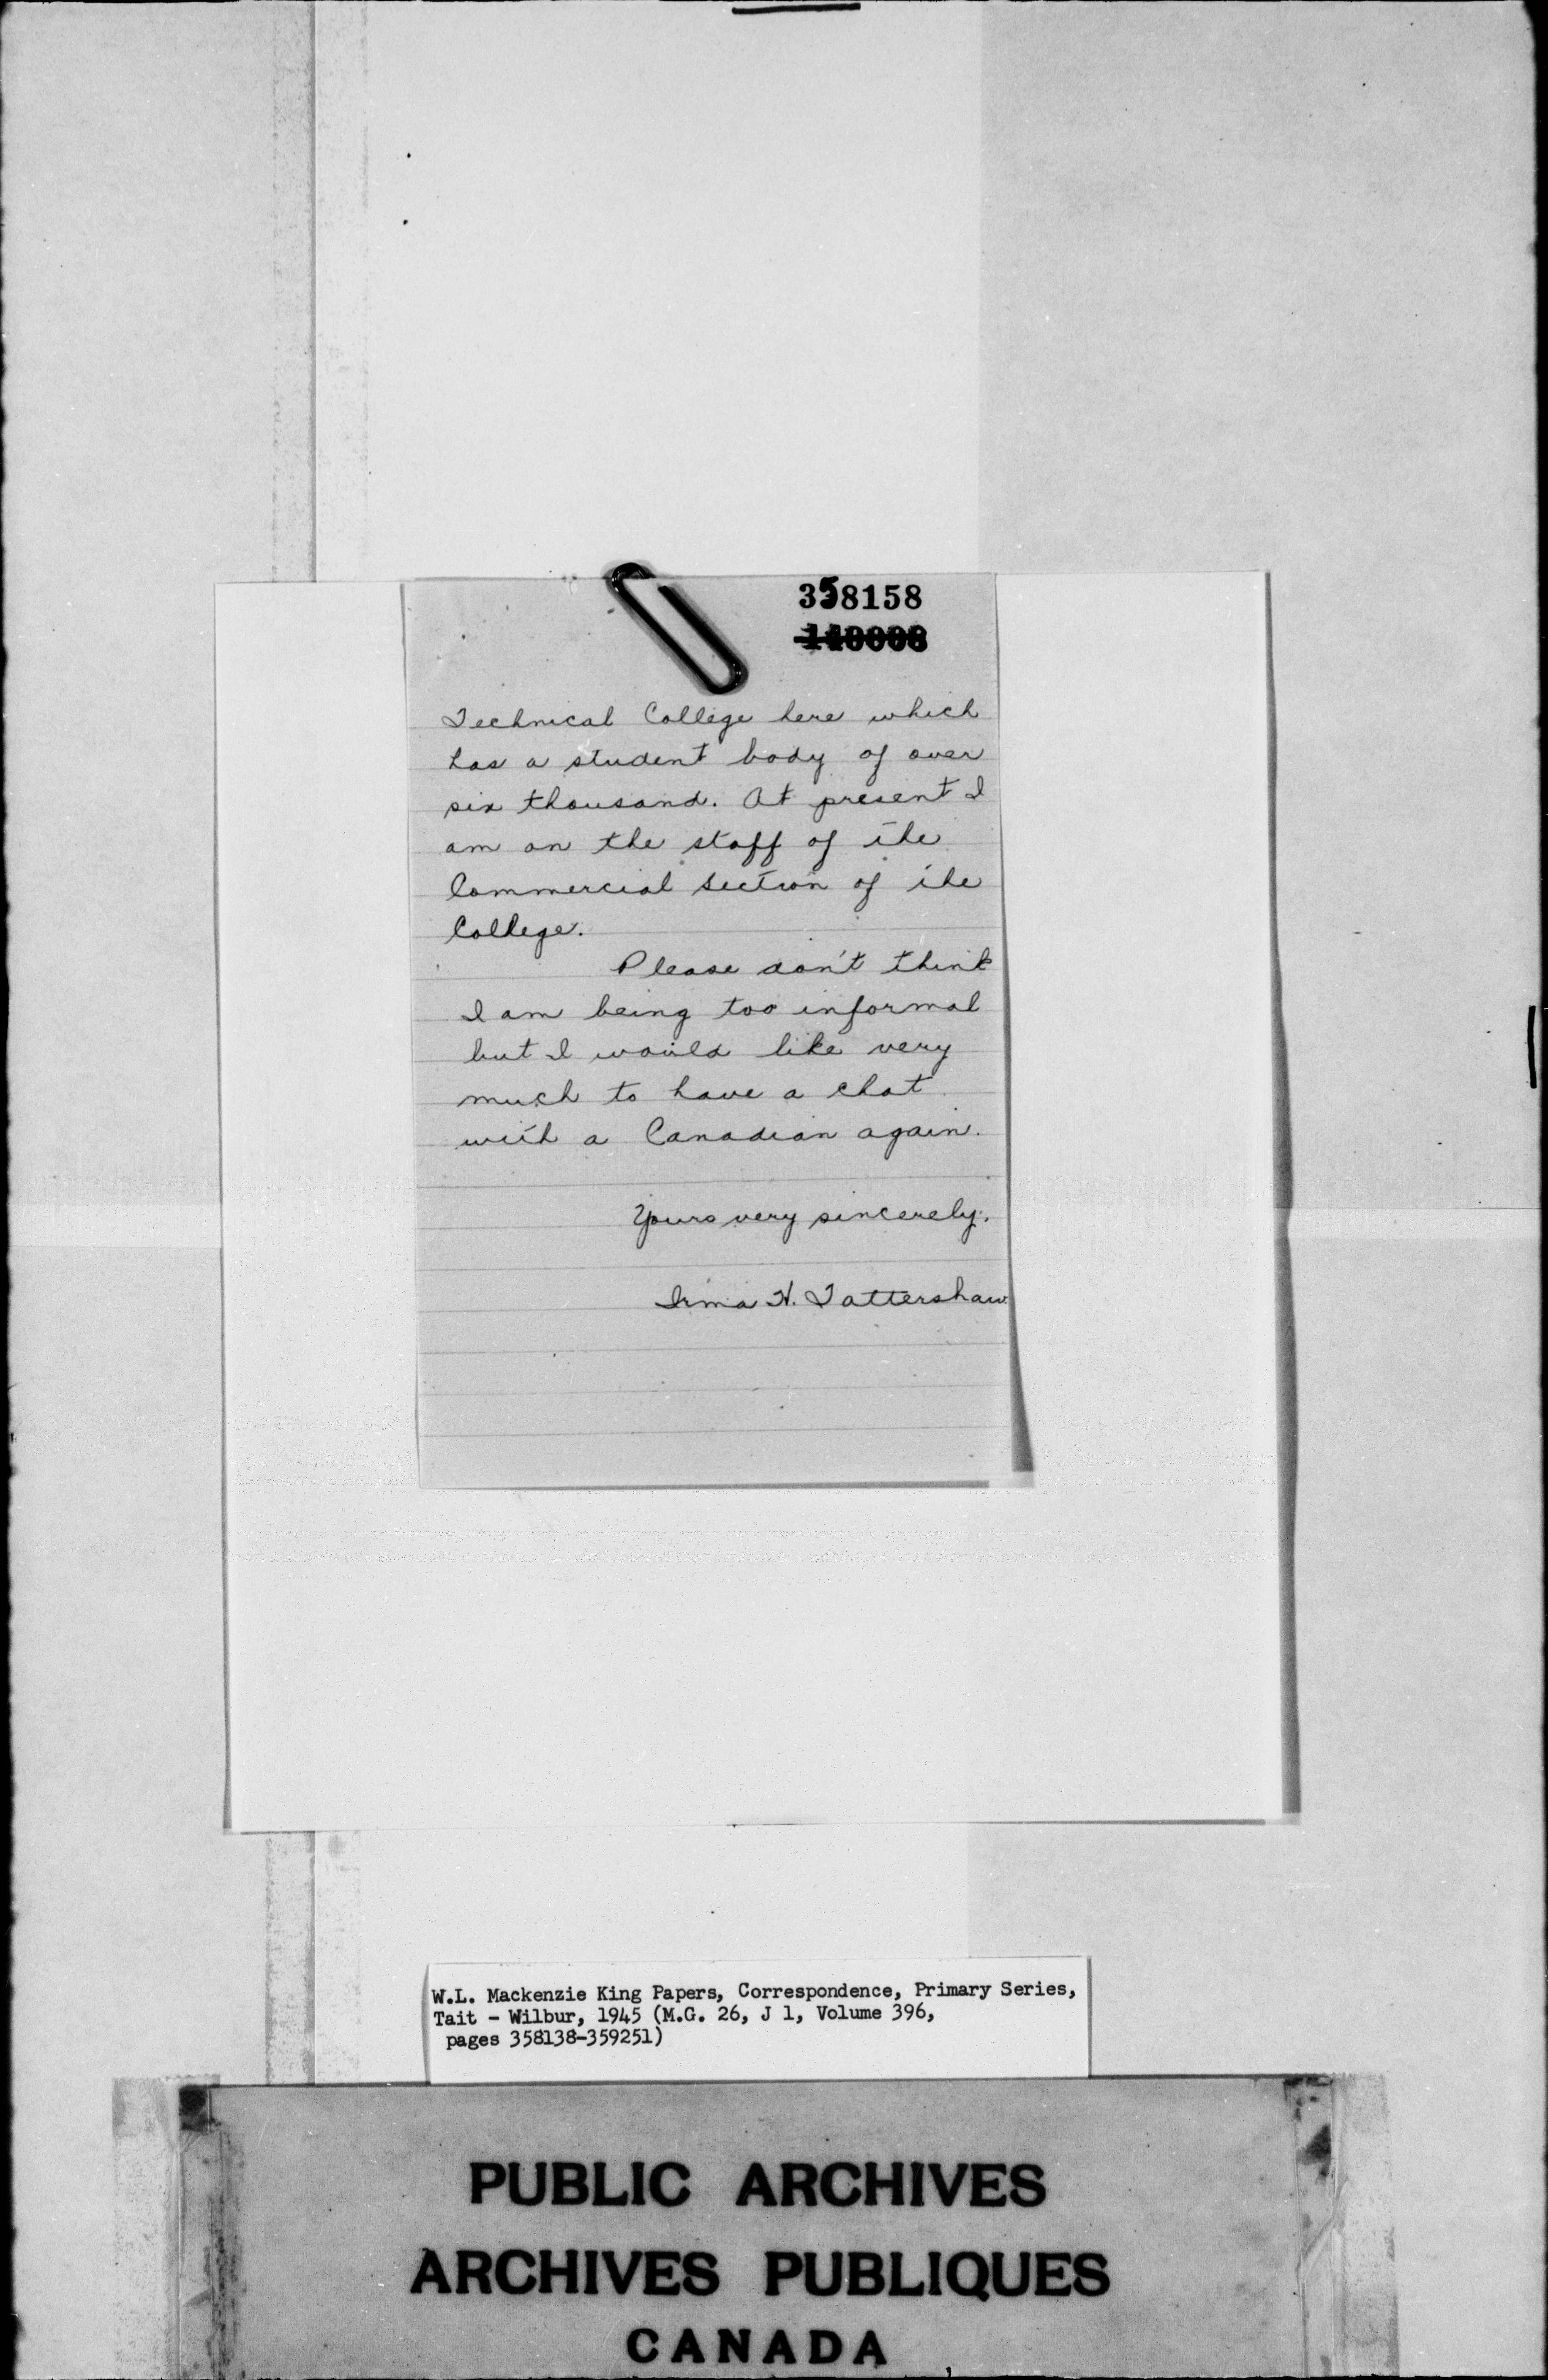 358158
Technical College here which
has a student body of over
six thousand. At present I
am on the staff of the
Commercial Section of the
College.
Please don't think
I am being too informal
but I would like very
much to have a chat
with a Canadian again.
Yours very sincerely,
Irma H. Tattershaw.
W.L. Mackenzie King Papers, Correspondence, Primary Series,
Tait - Wilbur, 1945 (M.G. 26, J 1, Volume 396,
pages 358138-359251)
PUBLIC ARCHIVES
ARCHIVES PUBLIQUES
CANADA